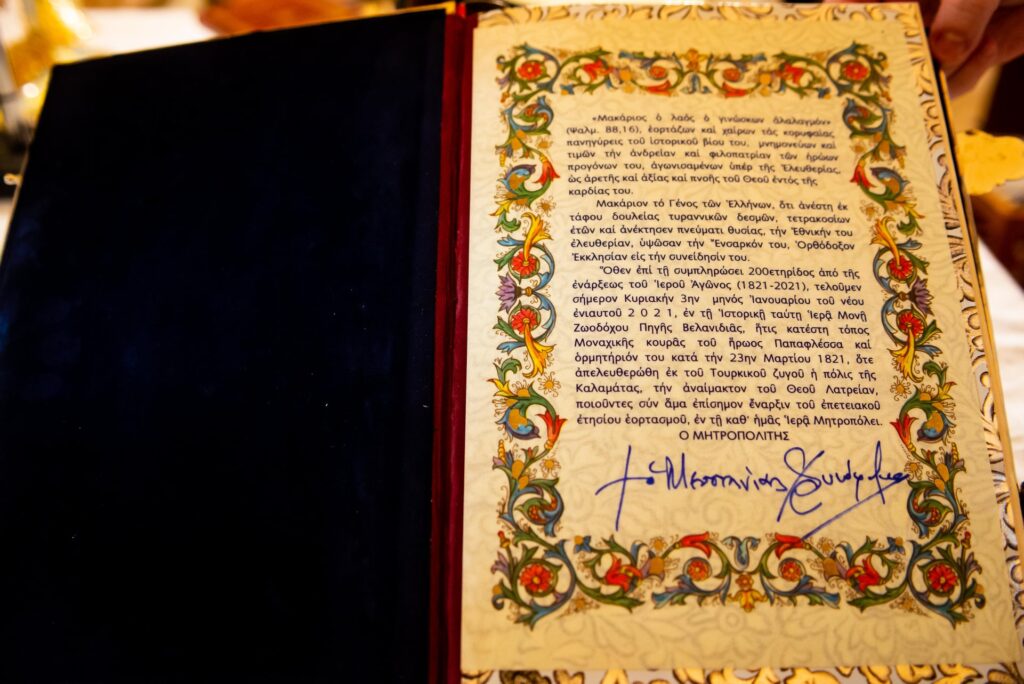 «Μακάριος ὁ λαός ὁ γινώσκων ἀλαλαγμόν»
(Ψαλμ. 88,16), ἑορτάζων καί χαίρων τάς κορυφαίας
πανηγύρεις τοῦ ἱστορικοῦ βίου του, μνημονεύων καί
τιμῶν τήν ἀνδρείαν καί φιλοπατρίαν τῶν ἡρώων
προγόνων του, ἀγωνισαμένων ὑπέρ τῆς Ἐλευθερίας,
ὡς ἀρετῆς καί ἀξίας καί πνοῆς τοῦ Θεοῦ ἐντός τῆς
καρδίας του.
Μακάριον τό Γένος τῶν Ἑλλήνων, ὅτι ἀνέστη ἐκ
τάφου δουλείας τυραννικῶν δεσμῶν, τετρακοσίων
ἐτῶν καί ἀνέκτησεν πνεύματι θυσίας, τήν Ἐθνικήν του
ἐλευθερίαν, ὑψῶσαν τήν Ἔνσαρκόν του, Ὀρθόδοξον
Ἐκκλησίαν εἰς τήν συνείδησίν του.
Ὅθεν ἐπί τῇ συμπληρώσει 200ετηρίδος ἀπό τῆς
ἐνάρξεως τοῦ Ἱεροῦ Ἀγῶνος (1821-2021), τελοῦμεν
σήμερον Κυριακήν 3ην μηνός Ἰανουαρίου τοῦ νέου
ἐνιαυτοῦ 2 0 2 1, ἐν τῇ Ἱστορικῇ ταύτῃ Ἱερᾷ Μονῇ
Ζωοδόχου Πηγῆς Βελανιδιᾶς, ἥτις κατέστη τόπος
Μοναχικῆς κουρᾶς τοῦ ἥρωος Παπαφλέσσα καί
ὁρμητήριόν του κατά τήν 23ην Μαρτίου 1821, ὅτε
ἀπελευθερώθη ἐκ τοῦ Τουρκικοῦ ζυγοῦ ἡ πόλις τῆς
Καλαμάτας, τήν ἀναίμακτον τοῦ Θεοῦ Λατρείαν,
ποιοῦντες σύν ἅμα ἐπίσημον ἔναρξιν τοῦ ἐπετειακοῦ
ἐτησίου ἑορτασμοῦ, ἐν τῇ καθ᾽ ἡμᾶς Ἱερᾷ Μητροπόλει.
Ο ΜΗΤΡΟΠΟΛΙΤΗΣ
ὁ Μεσσηνίας